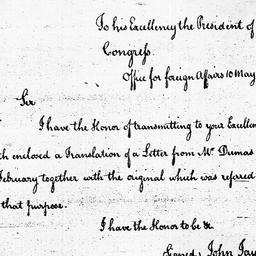 To his Excellency the President of
Congress.
Office for foreign Affairs 10 May
Sir
I have the Honor of transmitting to your Excellen
th enclosed a Translation of a Letter from Mr. Dumas
February together with the original which was refered
that purpose.
I have the Honor to be &c.
Signed, John Jay